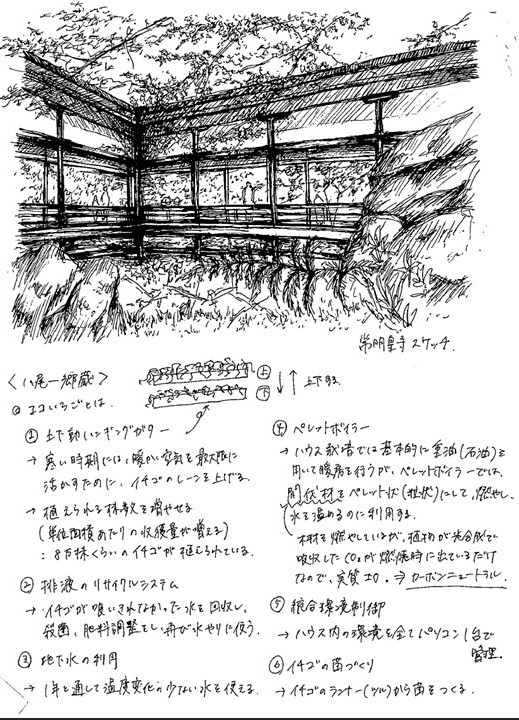 常明皇寺 スケッチ.
<八尾一郷蔵>
◎エコいちごとは.
上
下
上下する.
① 上下動ハンギングガター
→ 寒い時期には、暖かい空気を最大限に
活かすために、イチゴのレーンを上げる.
→ 植えられる株数を増やせる
(単位面積あたりの収穫量が増える)
: 8万株くらいのイチゴが植えられている.
② 排液のリサイクルシステム
→ イチゴが吸いきれなかった水を回収し、
殺菌、肥料調整をし、再び水やりに使う.
③ 地下水の利用
→ 1年を通して温度変化の少ない水を使える.
④ ペレットボイラー
→ ハウス栽培では基本的に重油(石油)を
用いて暖房を行うが、ペレットボイラーでは、
間伐材をペレット状(粒状)にして、燃やし、
水を温めるのに利用する.
木材を燃やしているが、植物が光合成で
吸収したCO₂が燃焼時に出ているだけ
なので、実質±0. ⇒ カーボンニュートラル.
⑤ 統合環境制御
→ ハウス内の環境を全てパソコン1台で
管理.
⑥ イチゴの苗づくり
→ イチゴのランナー(ツル)から苗をつくる.